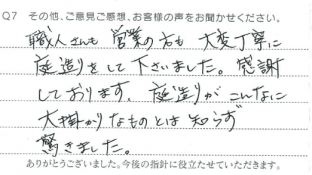 Q7 その他、ご意見ご感想、お客様の声をお聞かせください。
職人さんも 営業の方も 大変丁寧に
庭造りをして下さいました。感謝
しております。庭造りがこんなに
大掛かりなものとは知らず
驚きました。
ありがとうございました。今後の指針に役立たせていただきます。